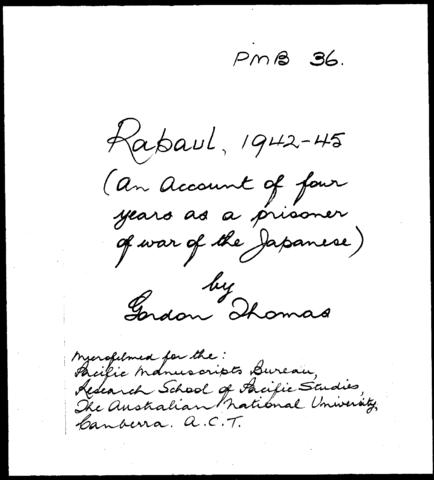 PMB 36.
Rabaul, 1942-45
(An Account of four
years as a prisoner
of war of the Japanese)
by
Gordon Thomas
Microfilmed for the:
Pacific Manuscripts Bureau,
Research School of Pacific Studies,
The Australian National University,
Canberra. A.C.T.